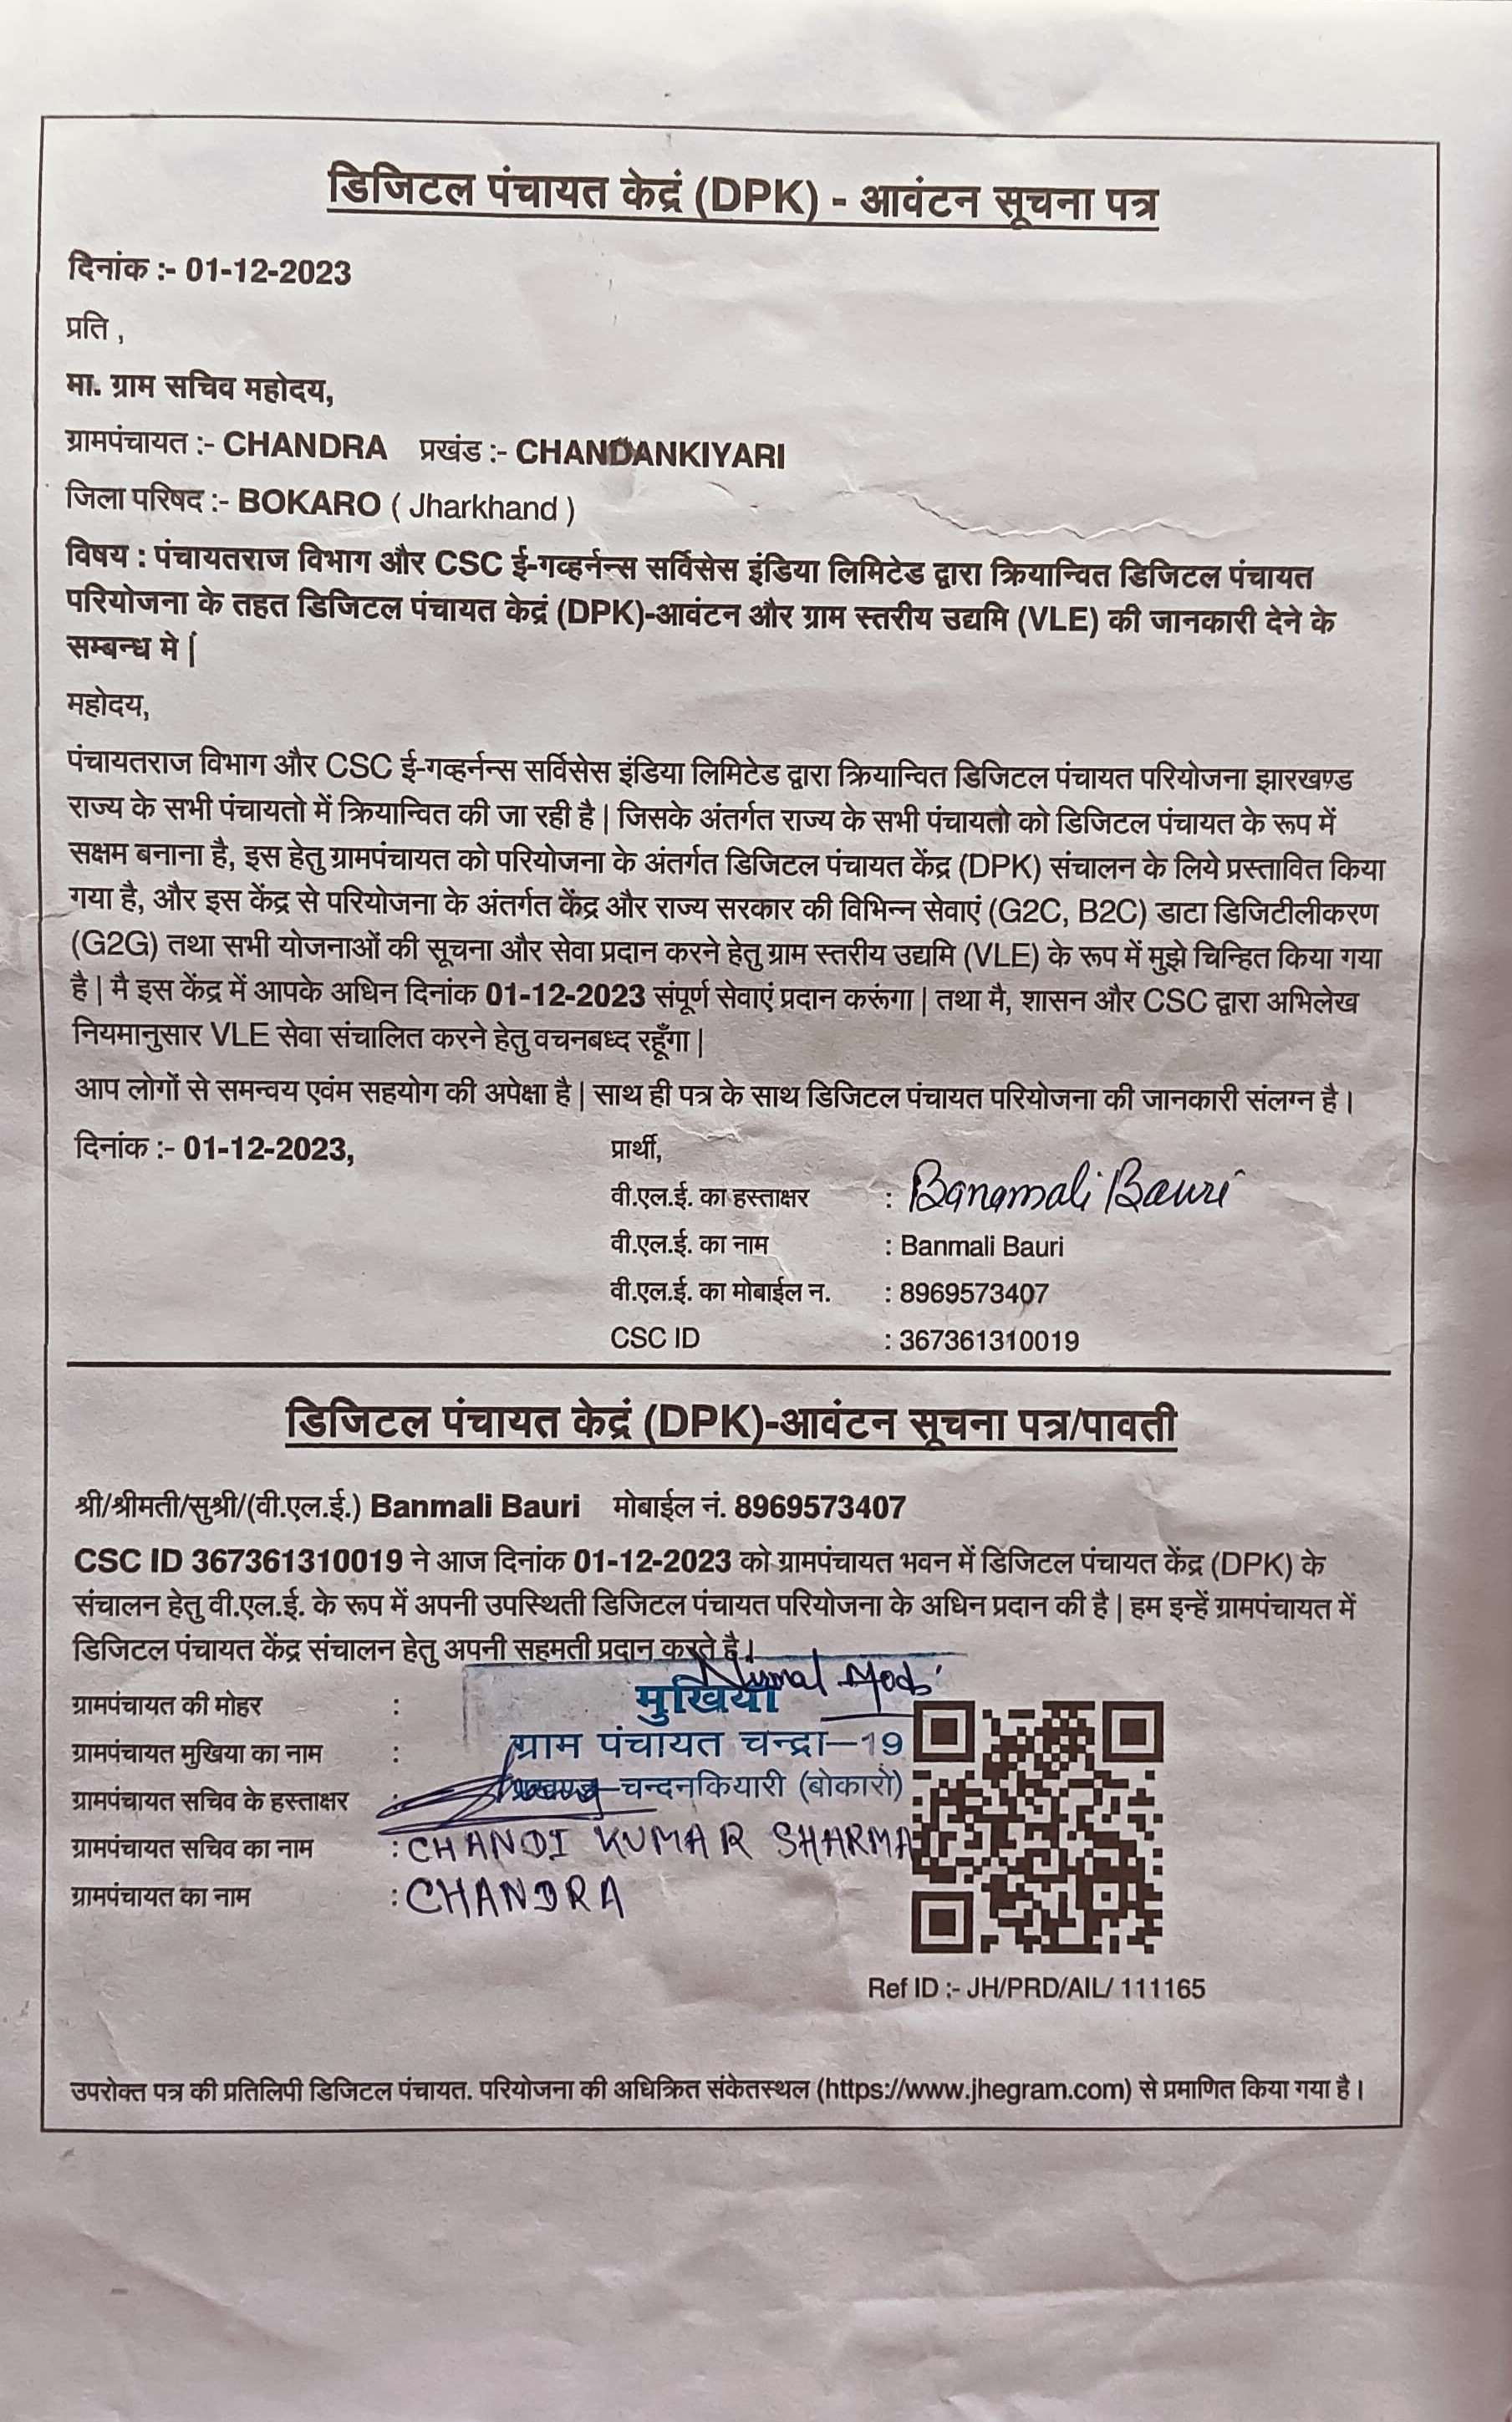 डिजिटल पंचायत केद्रं (DPK) - आवंटन सूचना पत्र
दिनांक :- 01-12-2023
प्रति ,
मा. ग्राम सचिव महोदय,
ग्रामपंचायत :- CHANDRA प्रखंड :- CHANDANKIYARI
जिला परिषद :- BOKARO ( Jharkhand )
विषय : पंचायतराज विभाग और CSC ई-गव्हर्नन्स सर्विसेस इंडिया लिमिटेड द्वारा क्रियान्वित डिजिटल पंचायत
परियोजना के तहत डिजिटल पंचायत केद्रं (DPK)-आवंटन और ग्राम स्तरीय उद्यमि (VLE) की जानकारी देने के
सम्बन्ध मे |
महोदय,
पंचायतराज विभाग और CSC ई-गव्हर्नन्स सर्विसेस इंडिया लिमिटेड द्वारा क्रियान्वित डिजिटल पंचायत परियोजना झारखण्ड
राज्य के सभी पंचायतो में क्रियान्वित की जा रही है | जिसके अंतर्गत राज्य के सभी पंचायतो को डिजिटल पंचायत के रूप में
सक्षम बनाना है, इस हेतु ग्रामपंचायत को परियोजना के अंतर्गत डिजिटल पंचायत केंद्र (DPK) संचालन के लिये प्रस्तावित किया
गया है, और इस केंद्र से परियोजना के अंतर्गत केंद्र और राज्य सरकार की विभिन्न सेवाएं (G2C, B2C) डाटा डिजिटीलीकरण
(G2G) तथा सभी योजनाओं की सूचना और सेवा प्रदान करने हेतु ग्राम स्तरीय उद्यमि (VLE) के रूप में मुझे चिन्हित किया गया
है | मै इस केंद्र में आपके अधिन दिनांक 01-12-2023 संपूर्ण सेवाएं प्रदान करूंगा | तथा मै, शासन और CSC द्वारा अभिलेख
नियमानुसार VLE सेवा संचालित करने हेतु वचनबध्द रहूँगा |
आप लोगों से समन्वय एवंम सहयोग की अपेक्षा है | साथ ही पत्र के साथ डिजिटल पंचायत परियोजना की जानकारी संलग्न है ।
दिनांक :- 01-12-2023, प्रार्थी,
वी.एल.ई. का हस्ताक्षर : Banamali Bauri
वी.एल.ई. का नाम : Banmali Bauri
वी.एल.ई. का मोबाईल न. : 8969573407
CSC ID : 367361310019
डिजिटल पंचायत केद्रं (DPK)-आवंटन सूचना पत्र/पावती
श्री/श्रीमती/सुश्री/(वी.एल.ई.) Banmali Bauri मोबाईल नं. 8969573407
CSC ID 367361310019 ने आज दिनांक 01-12-2023 को ग्रामपंचायत भवन में डिजिटल पंचायत केंद्र (DPK) के
संचालन हेतु वी.एल.ई. के रूप में अपनी उपस्थिती डिजिटल पंचायत परियोजना के अधिन प्रदान की है | हम इन्हें ग्रामपंचायत में
डिजिटल पंचायत केंद्र संचालन हेतु अपनी सहमती प्रदान करते है |
ग्रामपंचायत की मोहर : मुखिया
ग्रामपंचायत मुखिया का नाम : ग्राम पंचायत चन्द्रा–19
ग्रामपंचायत सचिव के हस्ताक्षर : प्रखण्ड–चन्दनकियारी (बोकारो)
ग्रामपंचायत सचिव का नाम : CHANDI KUMAR SHARMA
ग्रामपंचायत का नाम : CHANDRA
Ref ID :- JH/PRD/AIL/ 111165
उपरोक्त पत्र की प्रतिलिपी डिजिटल पंचायत. परियोजना की अधिक्रित संकेतस्थल (https://www.jhegram.com) से प्रमाणित किया गया है ।